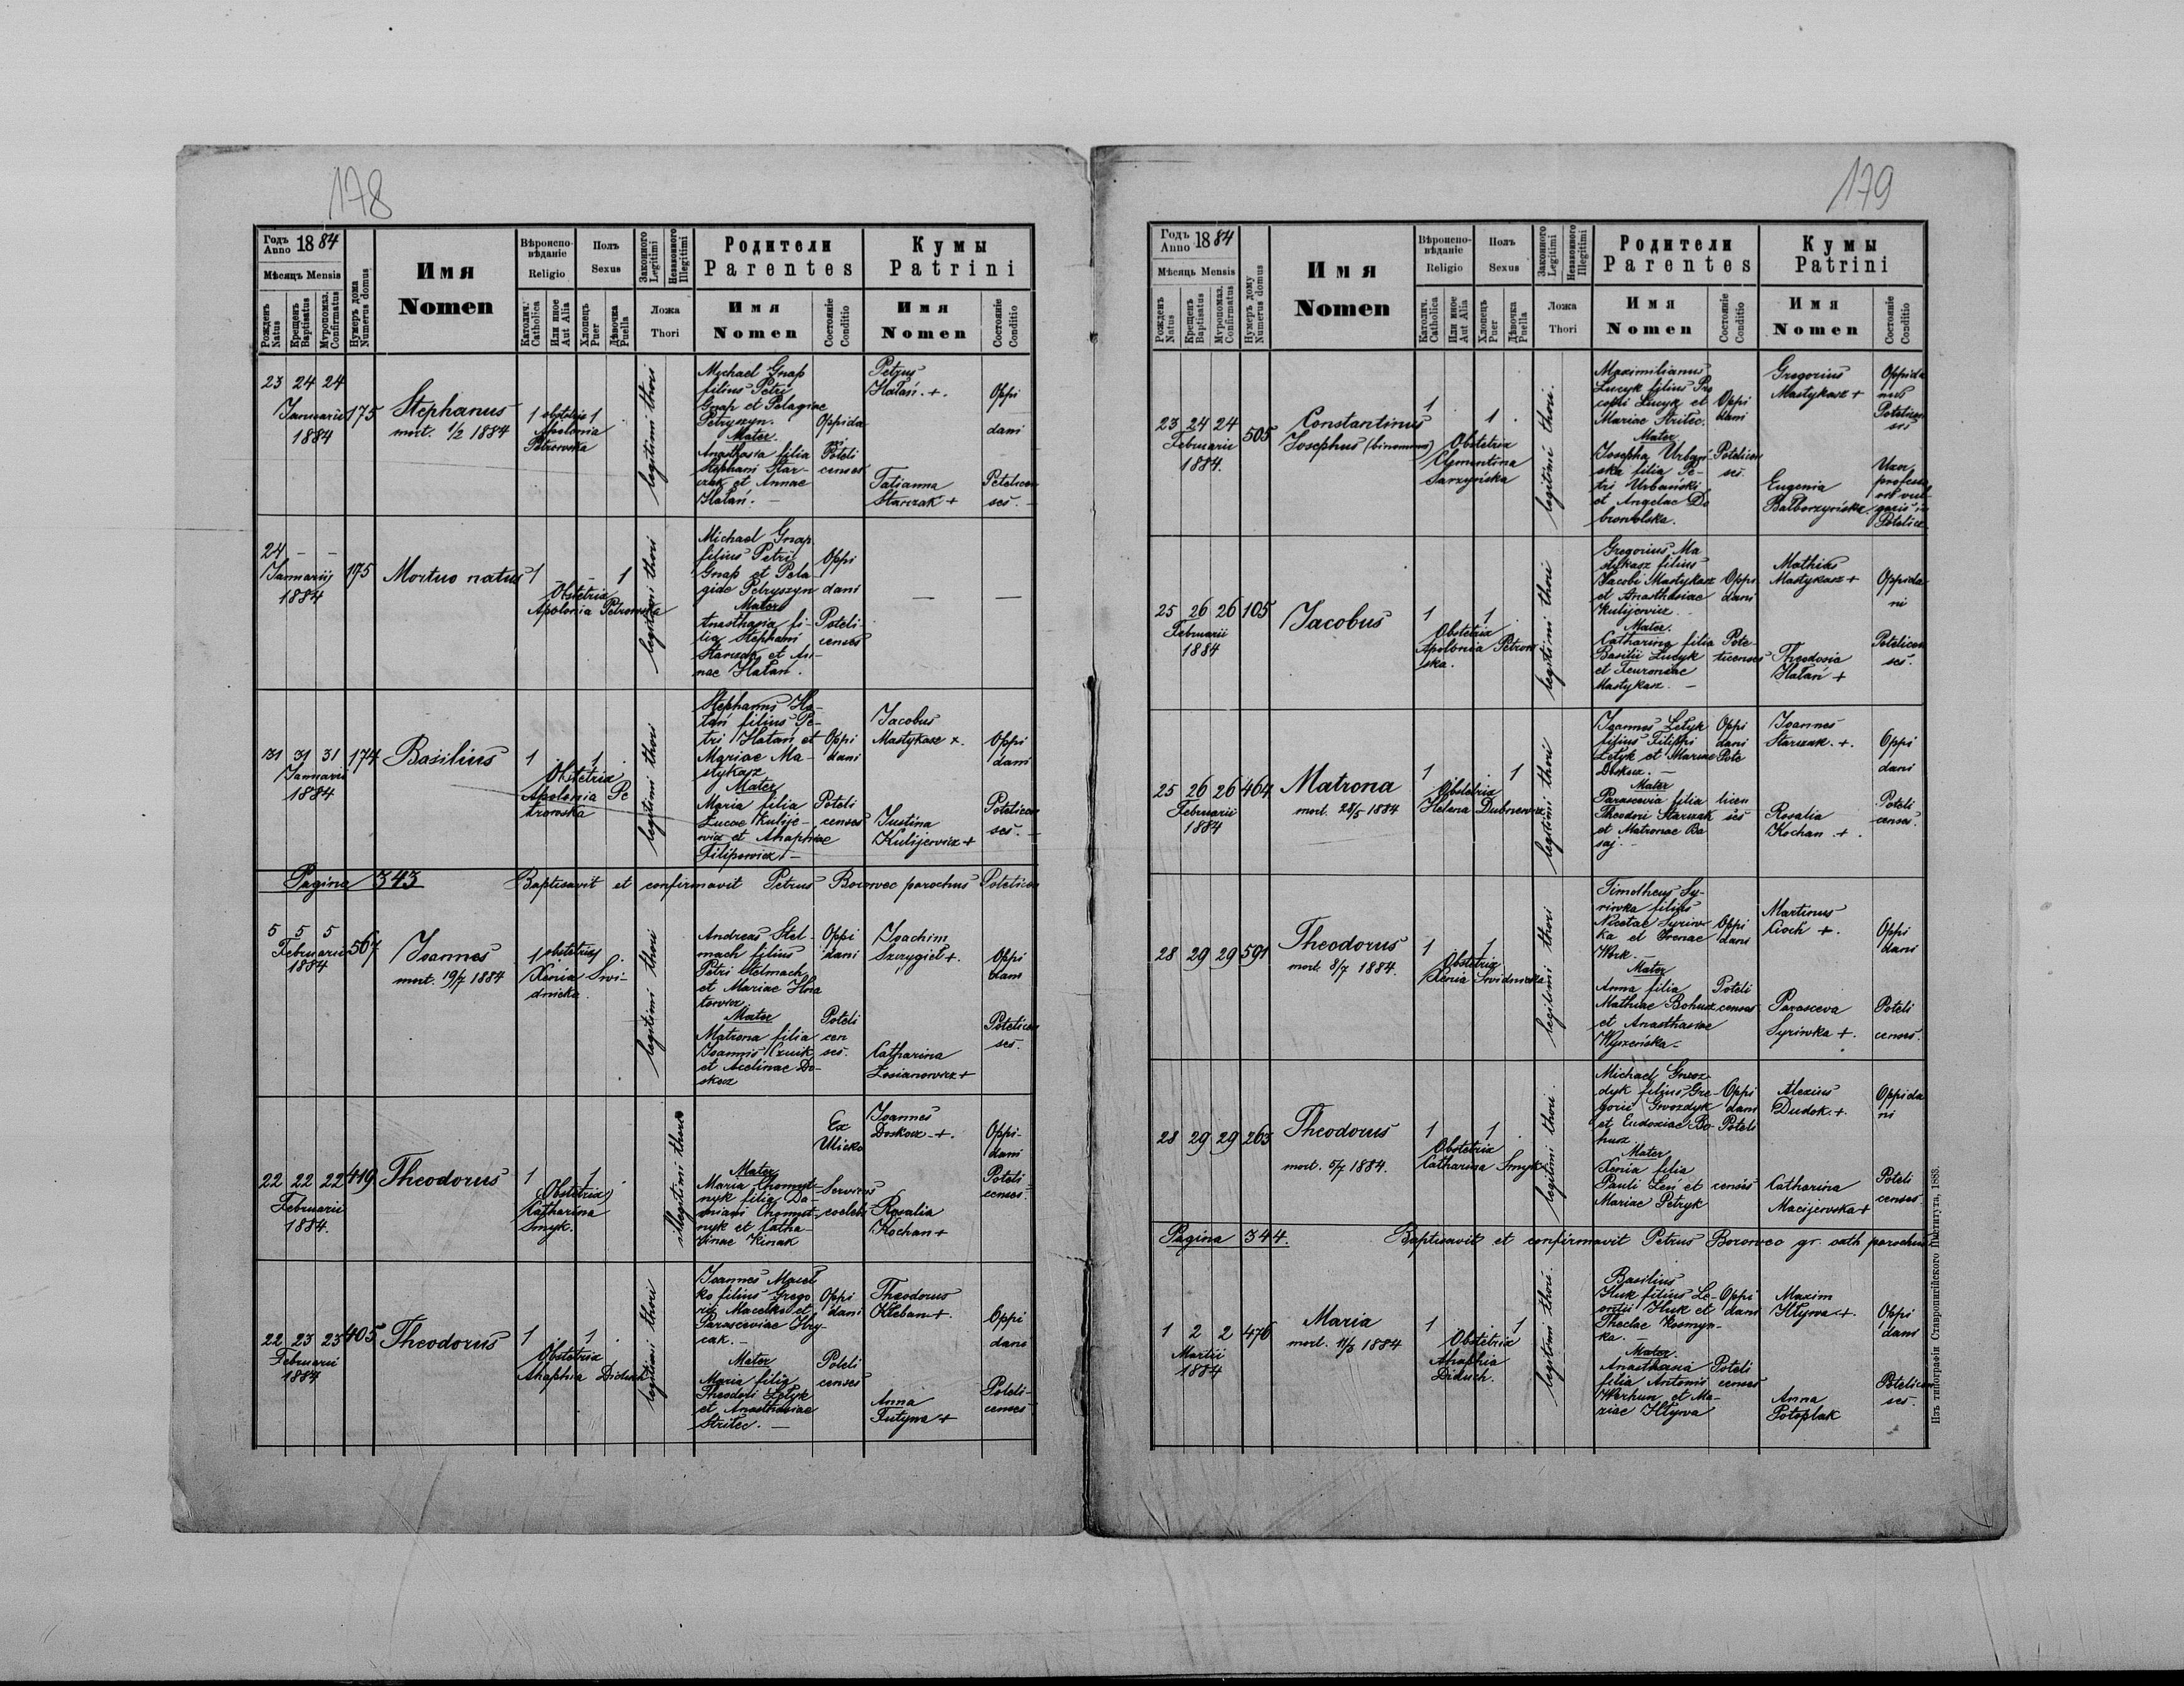 178
Годъ Anno 1884
Мѣсяцъ Mensis
Рожденъ Natus
Крещенъ Baptisatus
Мѵропомаз. Confirmatus
Нумеръ дома Numerus domus
Имя Nomen
Вѣроиспо-
вѣданіе
Religio
Католич. Catholica
Или иное Aut Alia
Полъ Sexus
Хлопецъ Puer
Дѣвочка Puella
Законного Legitimi
Незаконного Illegitimi
Ложа Thori
Родители Parentes
Имя Nomen
Состояніе Conditio
Кумы Patrini
Имя Nomen
Состояніе Conditio
23 24 24
Januarii
1884
175
Stephanus
mort. 1/2 1884
1 obstetrix 1
Apolonia
Petrowska
legitimi thori
Michael Gnap
filius Petri
Gnap et Pelagiae
Petryszyn.
Mater.
Anasthasia filia
Stephani Star-
czak et Annae
Hałań. -
Oppida
ni
Poteli
censes
Petrus
Hałań. +.
Tatianna
Starczak +
Oppi
dani
Poteliцen
ses. -
24 - -
Januarii
1884
175
Mortuo natus
1 - 1
Obstetrix
Apolonia Petrowska
legitimi thori
Michael Gnap
filius Petri
Gnap et Pela
giae Petryszyn
Mater
Anasthasia fi-
lia Stephani
Starczak et An-
nae Hałań.
Oppi
dani
Poteli-
censes
—
—
31 31 31
Januarii
1884
174
Basilius
1 . 1 .
Obstetrix
Apolonia Pe
trowska
legitimi thori
Stephanus Ha-
łań filius Pe-
tri Hałań et
Mariae Ma-
stykasz
Mater
Maria filia
Lucae Kulije-
wicz et Ahaphiae
Filipowicz. -
Oppi
dani
Poteli
censes
Jacobus
Mastykasz +.
Justina
Kulijewicz +
Oppi
dani
Potelicen
ses. -
Pagina 343
Baptisavit et confirmavit Petrus Borowec parochus Potelicen
5 5 5
Februarii
1884
567
Joannes
mort. 19/7 1884
1 obstetrix 1 .
Xenia Swi-
dnicka.
legitimi thori
Andreas Stel-
mach filius
Petri Stelmach
et Mariae Hna
towicz
Mater
Matrona filia
Joannis Czuik
et Acelinae Do-
skocz
Oppi
dani
Poteli
cen
ses.
Joachim
Szczygieł +.
Catharina
Łosianowicz +
Oppi
dani
Potelicen
ses.
22 22 22
Februarii
1884.
419
Theodorus
1 1 .
Obstetrix
Catharina
Smyk.
illegitimi thori
Mater
Maria Chomyt-
nyk filia Da-
miani Chomyt-
nyk et Catha-
rinae Kinak
Ex
Ulicko
Serviens
coelebs
Joannes
Doskocz +.
Rosalia
Kochan +
Oppi-
dani
Poteli-
censes.
22 23 23
Februarii
1884
405
Theodorus
1 1 .
Obstetrix
Ahaphia Diduch
legitimi thori
Joannes Macel
ko filius Grego
rii Macelko et
Parasceviae Hry-
cak. -
Mater
Maria filia
Theodori Letyk
et Anasthasiae
Stritec. —
Oppi
dani
Poteli
censes
Theodorus
Kleban +.
Anna
Futywa +
Oppi
dani
Poteli-
censes
179
Годъ Anno 1884
Мѣсяцъ Mensis
Рожденъ Natus
Крещенъ Baptisatus
Мѵропомаз. Confirmatus
Нумеръ дому Numerus domus
Имя Nomen
Вѣроиспо-
вѣданіе
Religio
Католич. Catholica
Или иное Aut Alia
Полъ Sexus
Хлопецъ Puer
Дѣвочка Puella
Законного Legitimi
Незаконного Illegitimi
Ложа Thori
Родители Parentes
Имя Nomen
Состояніе Conditio
Кумы Patrini
Имя Nomen
Состояніе Conditio
23 24 24
Februarii
1884.
505
Constantinus
Josephus (binomius)
1 . 1 .
Obstetrix
Clementina
Sarzyńska
legitimi thori.
Maximilianus
Lucyk filius Pro
copii Lucyk et
Mariae Stritec.
Mater
Josepha Urbań-
ska filia Pe-
tri Urbański
et Angelae Do
browolska.
Oppi
dani
Potelicen
ses.
Gregorius
Mastykasz +
Eugenia
Balborzyńska
Oppida
nus
Potelicen
sis
Uxor
profess
oris vul-
garis in
Potelicz
25 26 26
Februarii
1884
105
Jacobus
1 1 .
Obstetrix
Apolonia Petrow
ska.
legitimi thori
Gregorius Ma
stykasz filius
Jacobi Mastykasz
et Anasthasiae
Kulijewicz. -
Mater.
Catharina filia
Basilii Lucyk
et Feuroniae
Mastykasz. —
Oppi
dani
Pote-
licenses
Mathias
Mastykasz +
Theodosia
Hałań +
Oppida
ni
Potelicen
ses.
25 26 26
Februarii
1884
464
Matrona
mort. 28/5 1884
1 . 1
Obstetrix
Helena Dubnewicz
legitimi thori
Joannes Letyk
filius Filippi
Letyk et Mariae
Doskocz. —
Mater
Parascevia filia
Theodori Starczak
et Matronae Ba
saj. -
Oppi
dani
Pote
licen
ses
Joannes
Starczak. +.
Rosalia
Kochan +.
Oppi
dani
Poteli
censes.
28 29 29
591
Theodorus
mort. 8/7 1884.
1 1 .
Obstetrix
Xenia Swidnicka
legitimi thori
Timotheus Sy-
riwka filius
Nicetae Syriw-
ka et Irenae
Work. —
Mater
Anna filia
Mathiae Bohusz
et Anasthasiae
Wyzeńska. -
Oppi
dani
Poteli
censes
Martinus
Cioch +.
Parasceva
Syriwka +.
Oppi
dani
Poteli
censes.
28 29 29
263
Theodorus
mort. 5/7 1884.
1 1 .
Obstetrix
Catharina Smyk
legitimi thori.
Michael Gwoz
dyk filius Gre-
gorii Gwozdyk
et Eudoxiae Bo-
husz
Mater
Xenia filia
Pauli Leń et
Mariae Petryk
Oppi
dani
Poteli
censes
Alexius
Dudok. +.
Catharina
Macijewska +
Oppida
ni
Poteli
censes.
Pagina 344.
Baptisavit et confirmavit Petrus Borowec gr. cath parochus
1 2 2
Martii
1884
476
Maria
mort. 11/3 1884
1 . 1
Obstetrix
Ahaphia
Diduch.
legitimi thori.
Basilius
Huk filius Le-
ontii Huk et
Theclae Kosmyn-
ka. —
Mater.
Anasthasia
filia Antonii
Werhun et Ma-
riae Hlywa
Oppi
dani
Poteli
censes
Maxim
Hlywa +.
Anna
Potoplak
Oppi
dani
Potelicen
ses.
Изъ типографіи Ставропигійского Института, 1883.